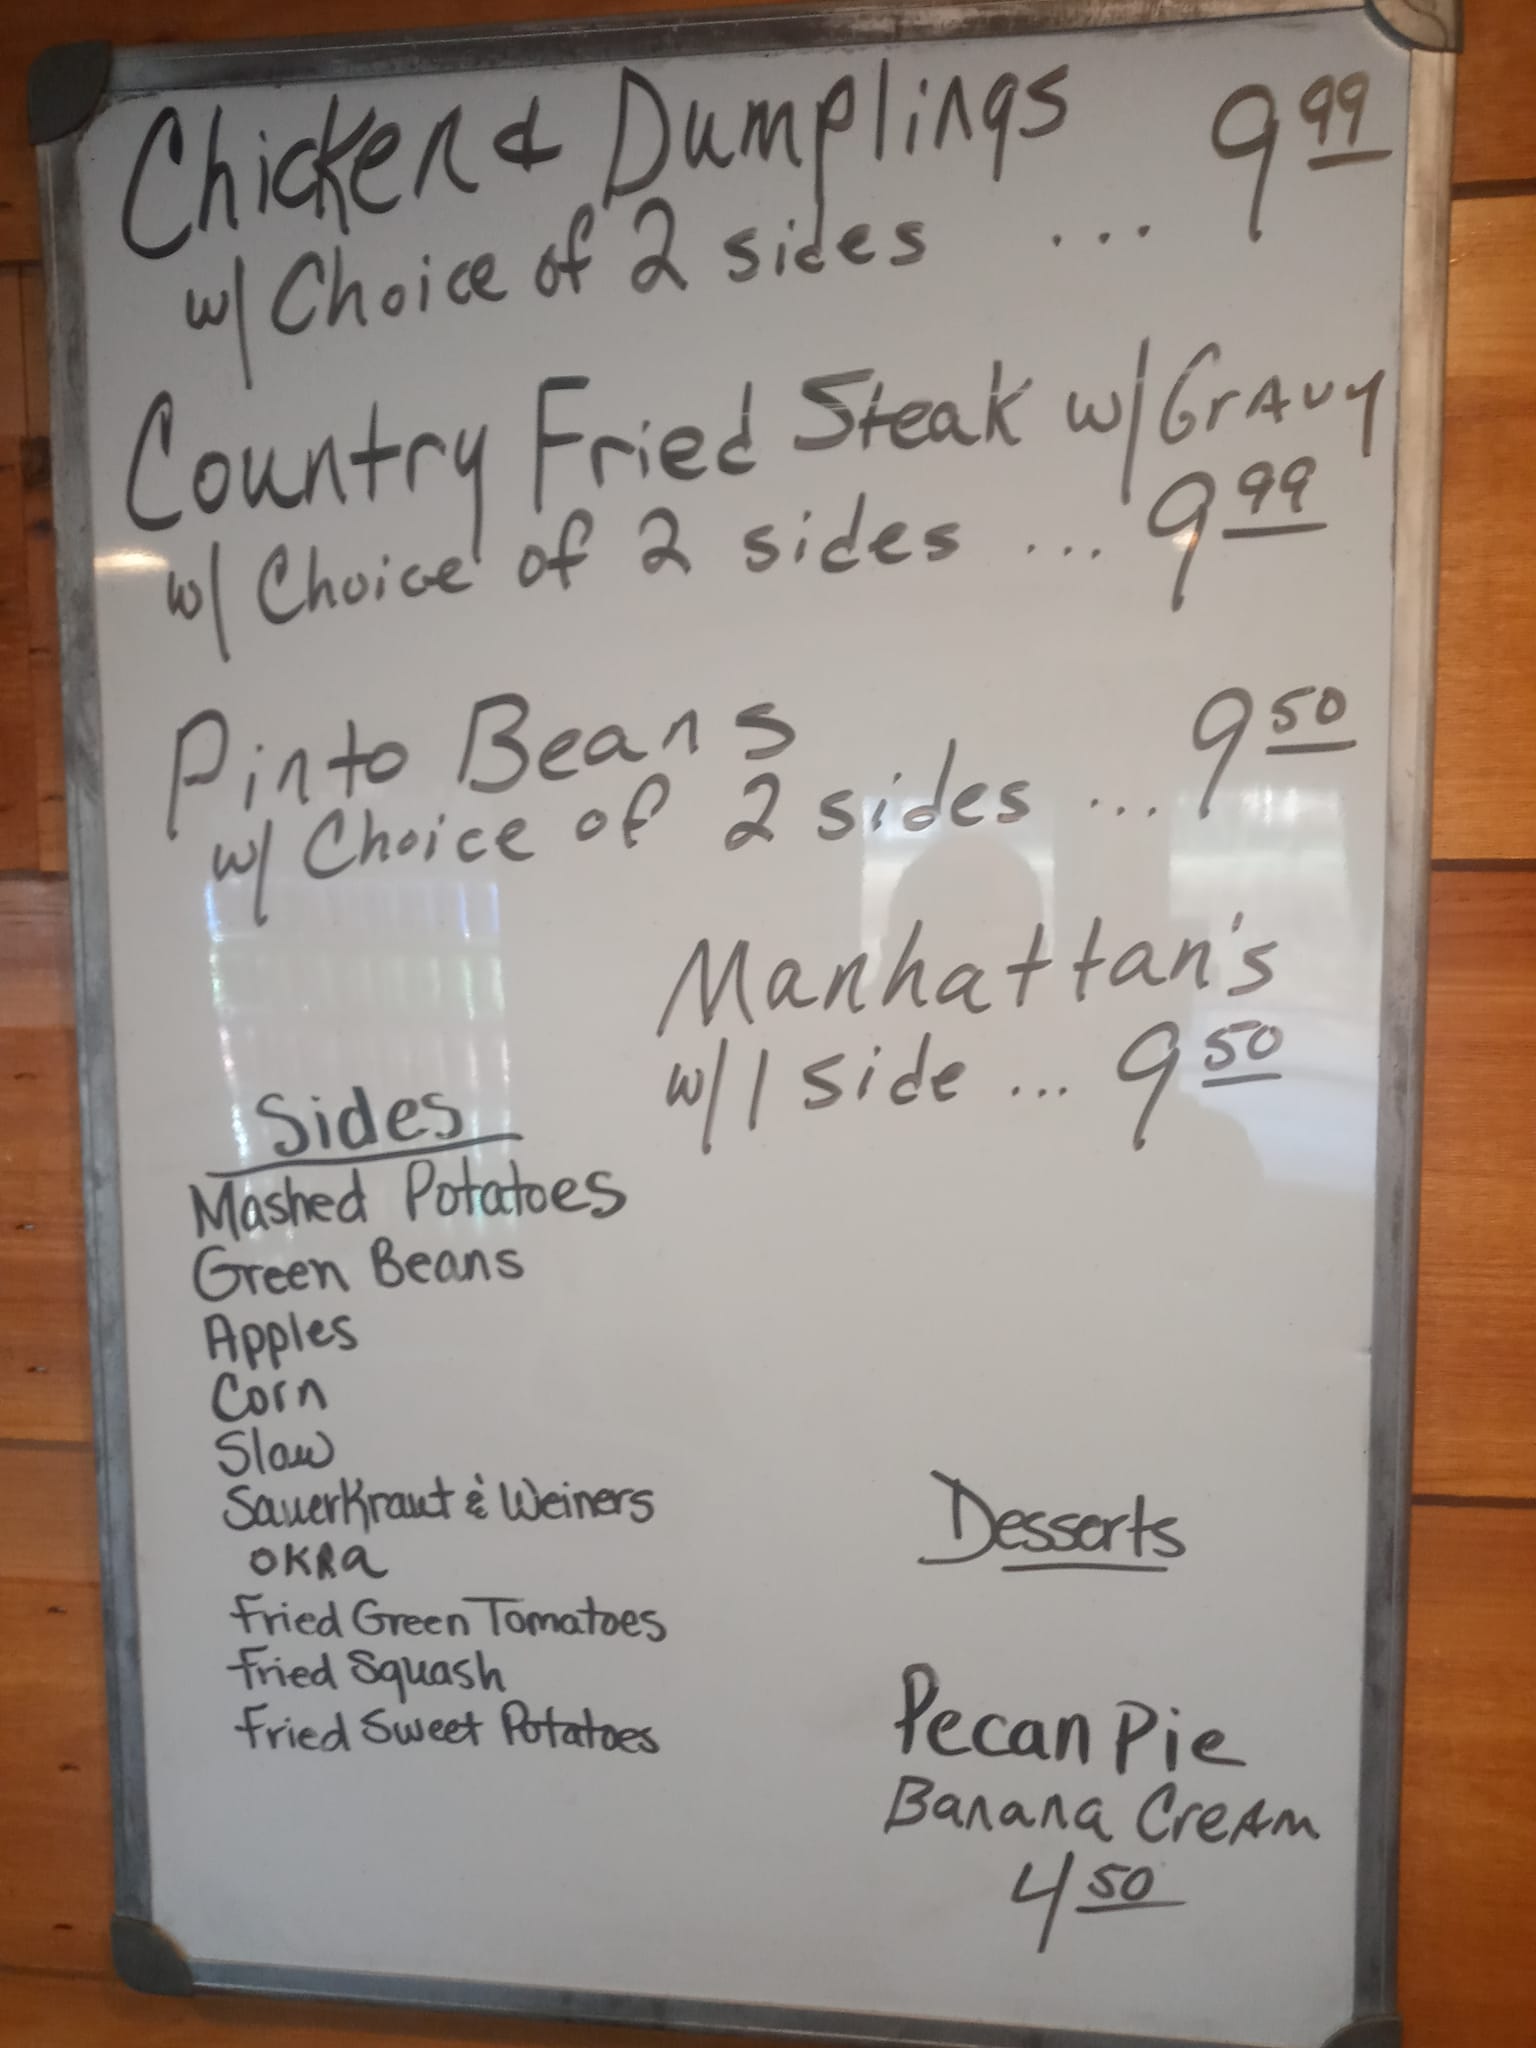 Chicken & Dumplings 9 99
w/ Choice of 2 sides ...
Country Fried Steak w/ Gravy
w/ Choice of 2 sides ... 9 99
Pinto Beans 9 50
w/ Choice of 2 sides ...
Manhattan's
w/ 1 side ... 9 50
Sides
Mashed Potatoes
Green Beans
Apples
Corn
Slaw
SauerKraut & Weiners
OKRa
Fried Green Tomatoes
Fried Squash
Fried Sweet Potatoes
Desserts
Pecan Pie
Banana Cream
4 50